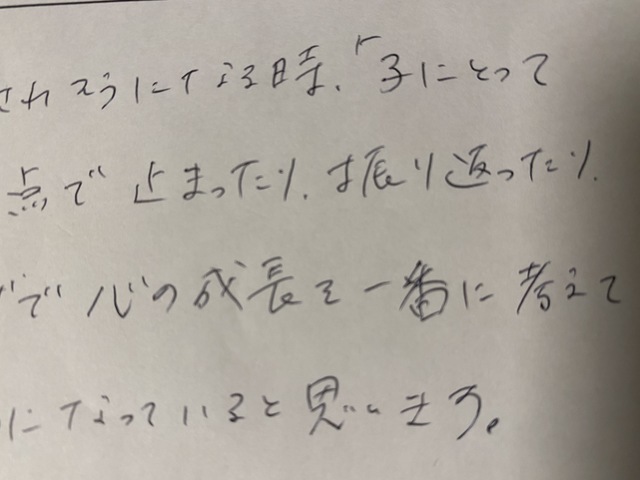 されそうになる時、「子にとって
点で止まったり、振り返ったり、
で心の成長を一番に考えて
になっていると思います。